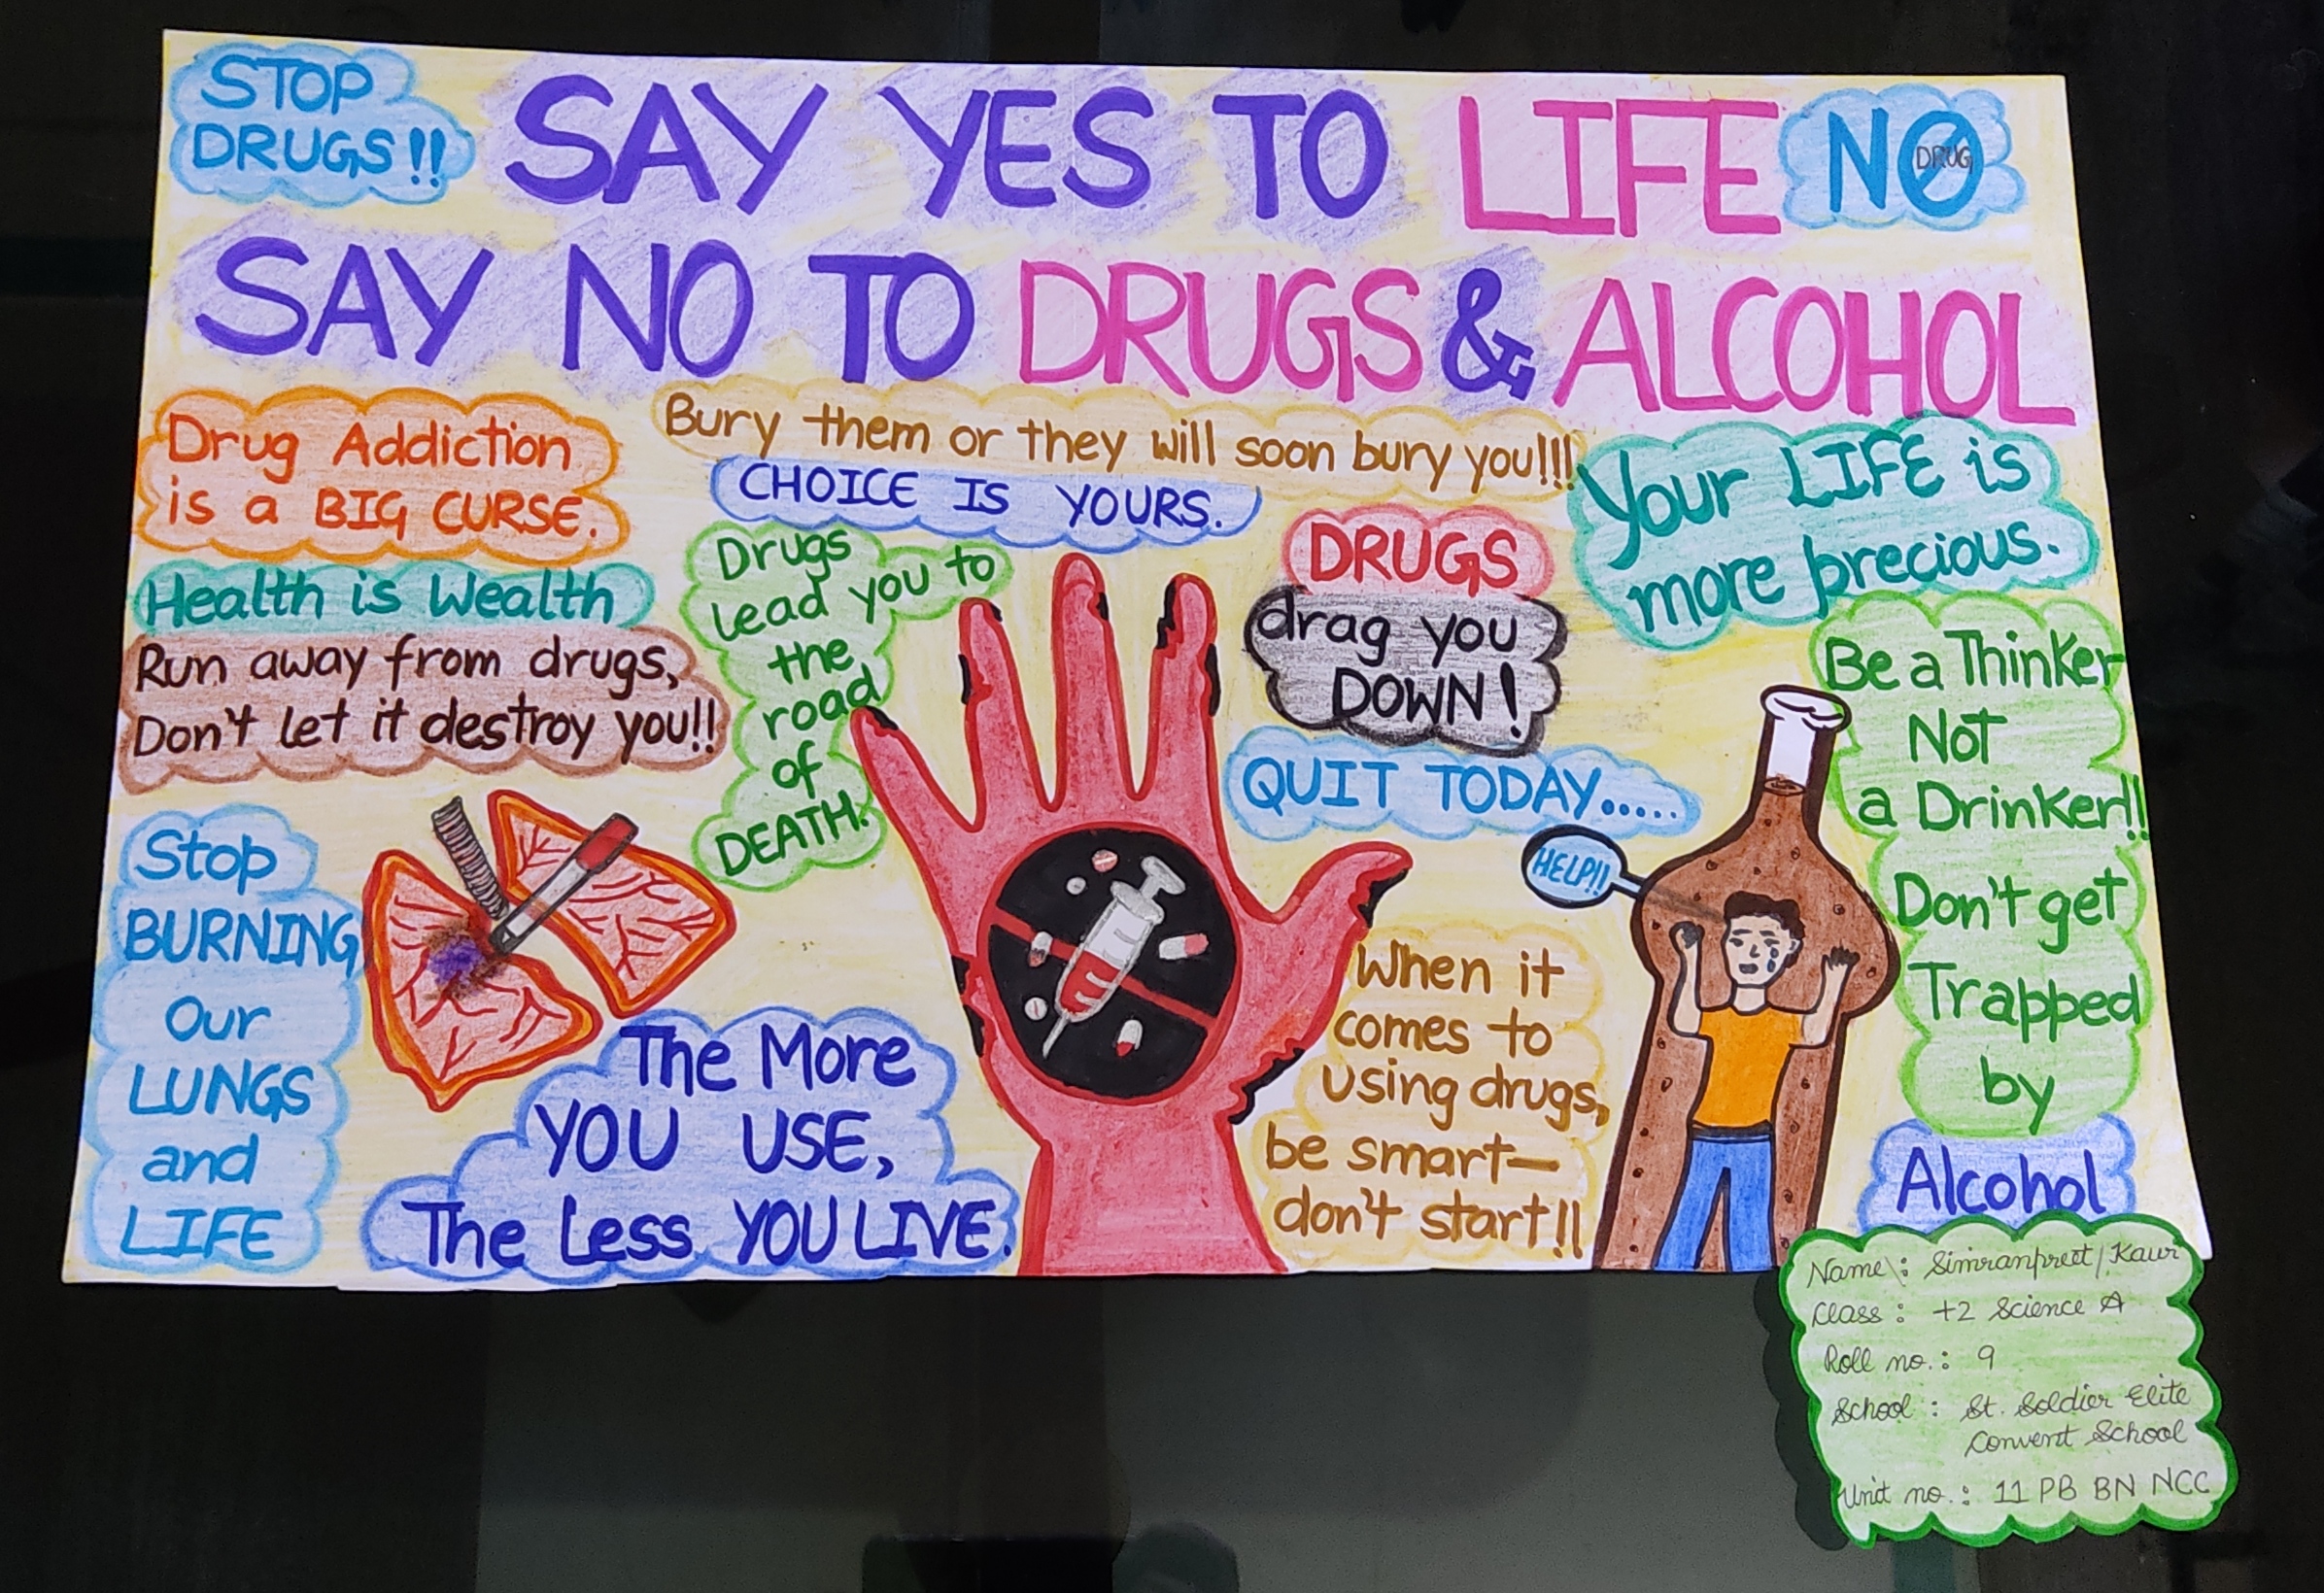 STOP
DRUGS!!
SAY YES TO LIFE
NO
DRUG
SAY NO TO DRUGS & ALCOHOL
Drug Addiction
is a BIG CURSE.
Bury them or they will soon bury you!!!
CHOICE IS YOURS.
Your LIFE is
more precious.
Health is Wealth
Run away from drugs,
Don't let it destroy you!!
Drugs
lead you to
the
road
of
DEATH.
DRUGS
drag you
DOWN!
QUIT TODAY.....
Be a Thinker
Not
a Drinker!!
Don't get
Trapped
by
Alcohol
HELP!!
Stop
BURNING
Our
LUNGS
and
LIFE
The More
YOU USE,
The Less YOU LIVE.
When it
comes to
using drugs,
be smart—
don't start!!
Name : Simranpreet Kaur
Class : +2 Science A
Roll no. : 9
School : St. Soldier Elite
Convent School
Unit no. : 11 PB BN NCC